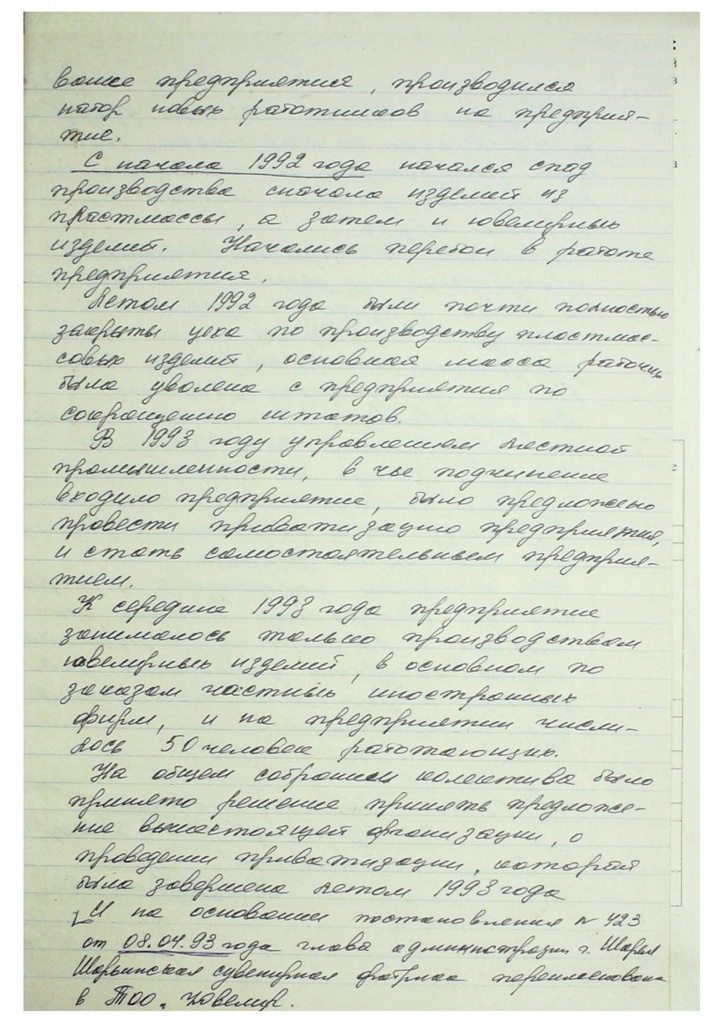 вание предприятия, производился
набор новых работников на предприя-
тие.
С начала 1992 года начался спад
производства сначала изделий из
пластмассы, а затем и ювелирных
изделий. Начались перебои в работе
предприятия.
Летом 1992 года были почти полностью
закрыты цеха по производству пластмас-
совых изделий, основная масса рабочих
была уволена с предприятия по
сокращению штатов.
В 1993 году управлением местной
промышленности, в чье подчинение
входило предприятие, было предложено
провести приватизацию предприятия,
и стать самостоятельным предприя-
тием.
К середине 1993 года предприятие
занималось только производством
ювелирных изделий, в основном по
заказам частных иностранных
фирм, и на предприятии числи-
лось 50 человек работающих.
На общем собрании колектива было
принято решение принять предложе-
ние вышестоящей организации, о
проведении приватизации, которая
была завершена летом 1993 года
И на основании постановления № 423
от 08.04.93 года глава администрации г. Шарья
Шарьинская сувенирная фабрика переименована
в ТОО „Ювелир.